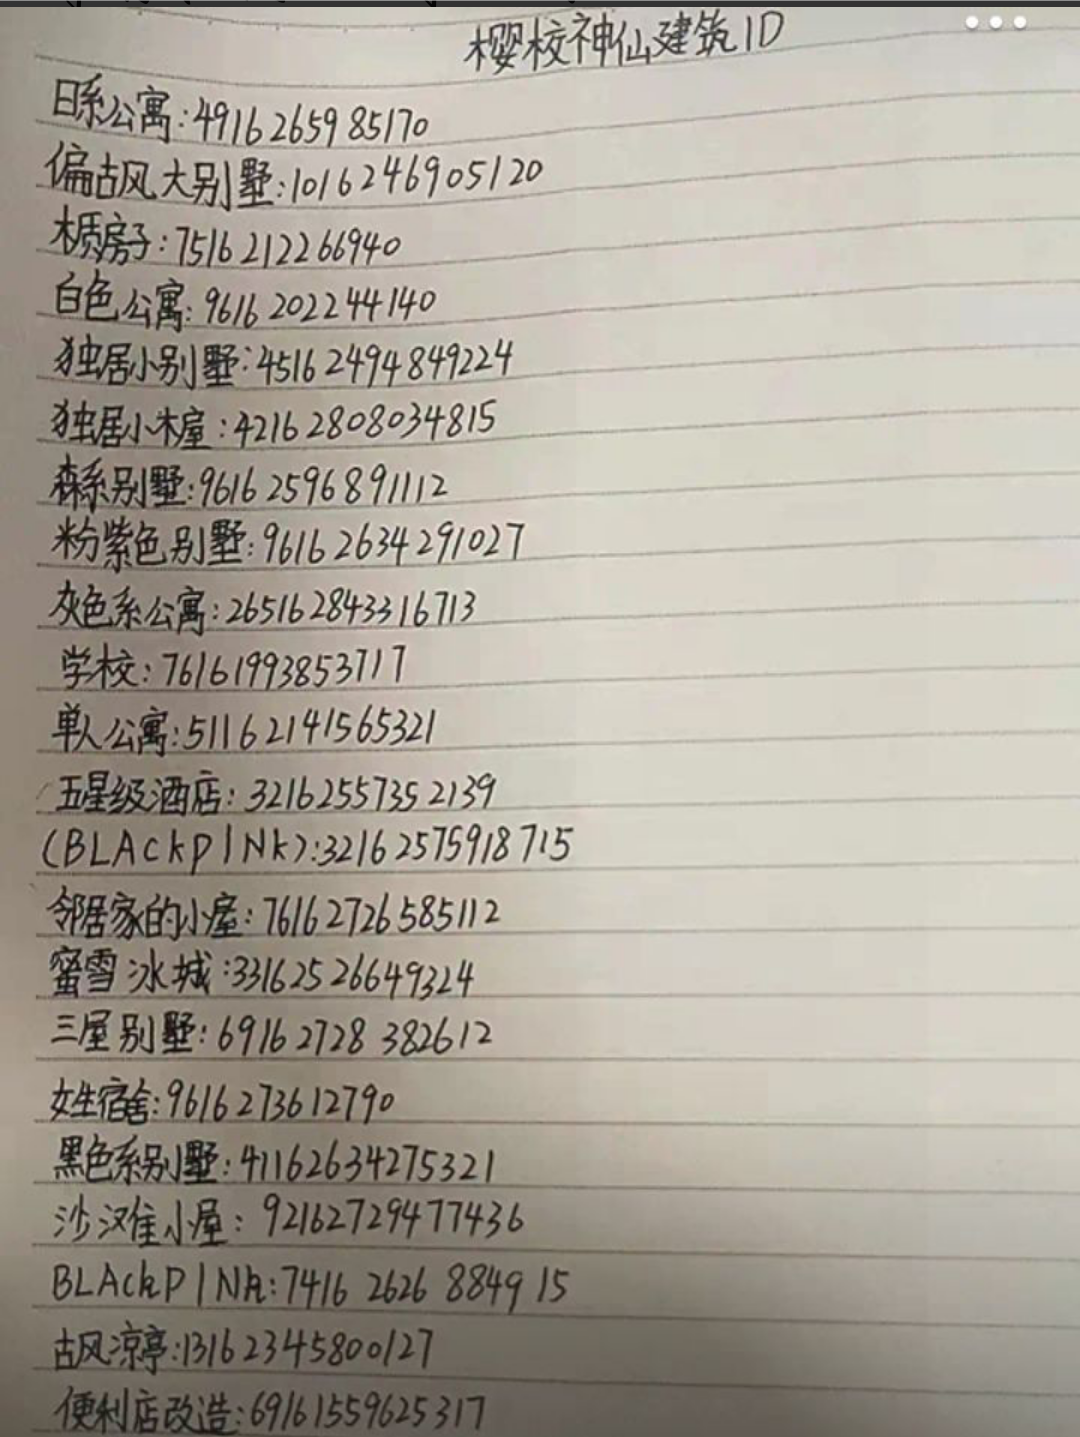 樱校神仙建筑ID
日系公寓:4916265985170
偏古风大别墅:10162246905120
木质房子:7516212266940
白色公寓:9616202244140
独居小别墅:45162494849224
独居小木屋:42162808034815
森系别墅:96162596891112
粉紫色别墅:96162634291027
灰色系公寓:265162843316713
学校:76161993853717
单人公寓:51162141565321
五星级酒店:32162557352139
(BLAckpINk):32162575918715
邻居家的小屋:76162726585112
蜜雪冰城:33162526649324
三层别墅:69162728382612
女生宿舍:9616273612790
黑色系别墅:41162634275321
沙滩小屋:92162729477436
BLAckPINk:74162626884915
古风凉亭:13162345800127
便利店改造:69161559625317